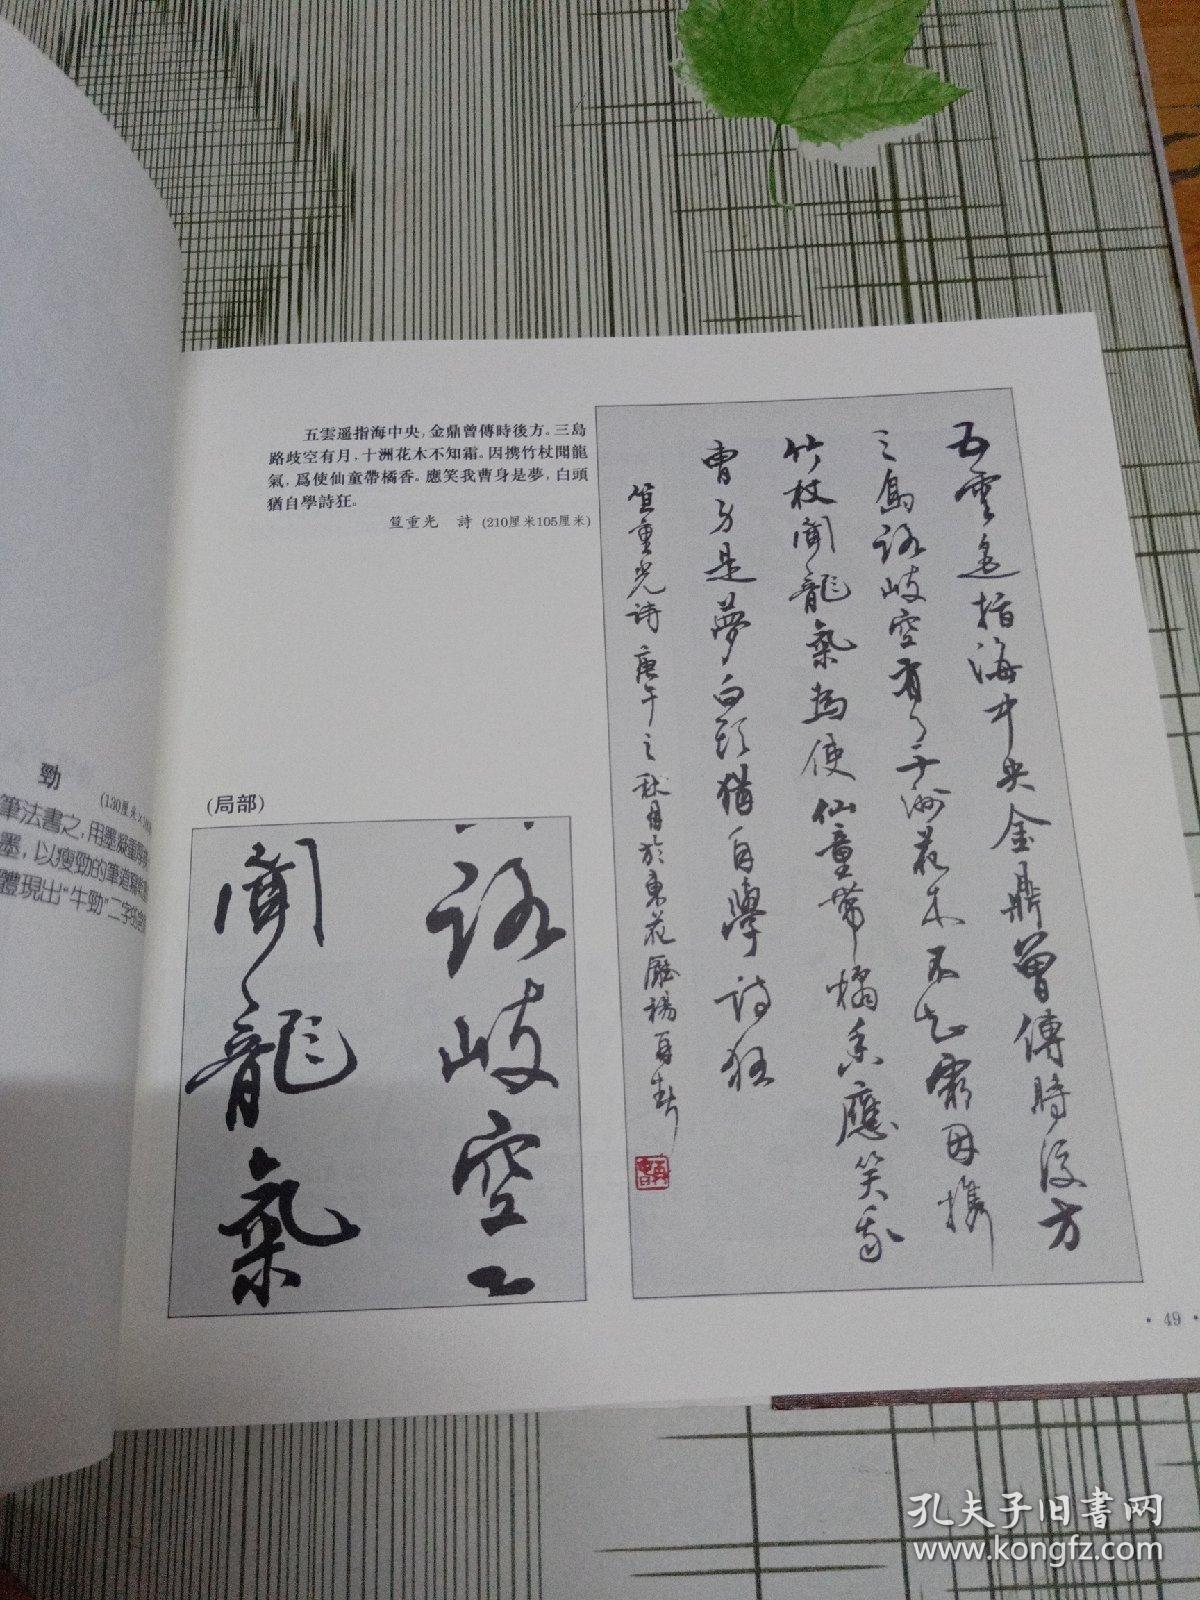 五雲遥指海中央，金鼎曾傳時後方。三島
路歧空有月，十洲花木不知霜。因携竹杖聞龍
氣，爲使仙童帶橘香。應笑我曹身是夢，白頭
猶自學詩狂。
笪重光　詩 (210厘米105厘米)
五雲遥指海中央金鼎曾傳時後方
三島路岐空有月十洲花木不知霜因携
竹杖聞龍氣為使仙童帶橘香應笑我
曹身是夢白頭猶自學詩狂
笪重光詩庚午之秋月於東花廳楊再春
(局部)
路岐空
聞龍氣
勁
(130厘米×
筆法書之，用墨凝重
墨，以瘦勁的筆道寫
體現出“牛勁”二字
· 49 ·
孔夫子旧书网
www.kongfz.com